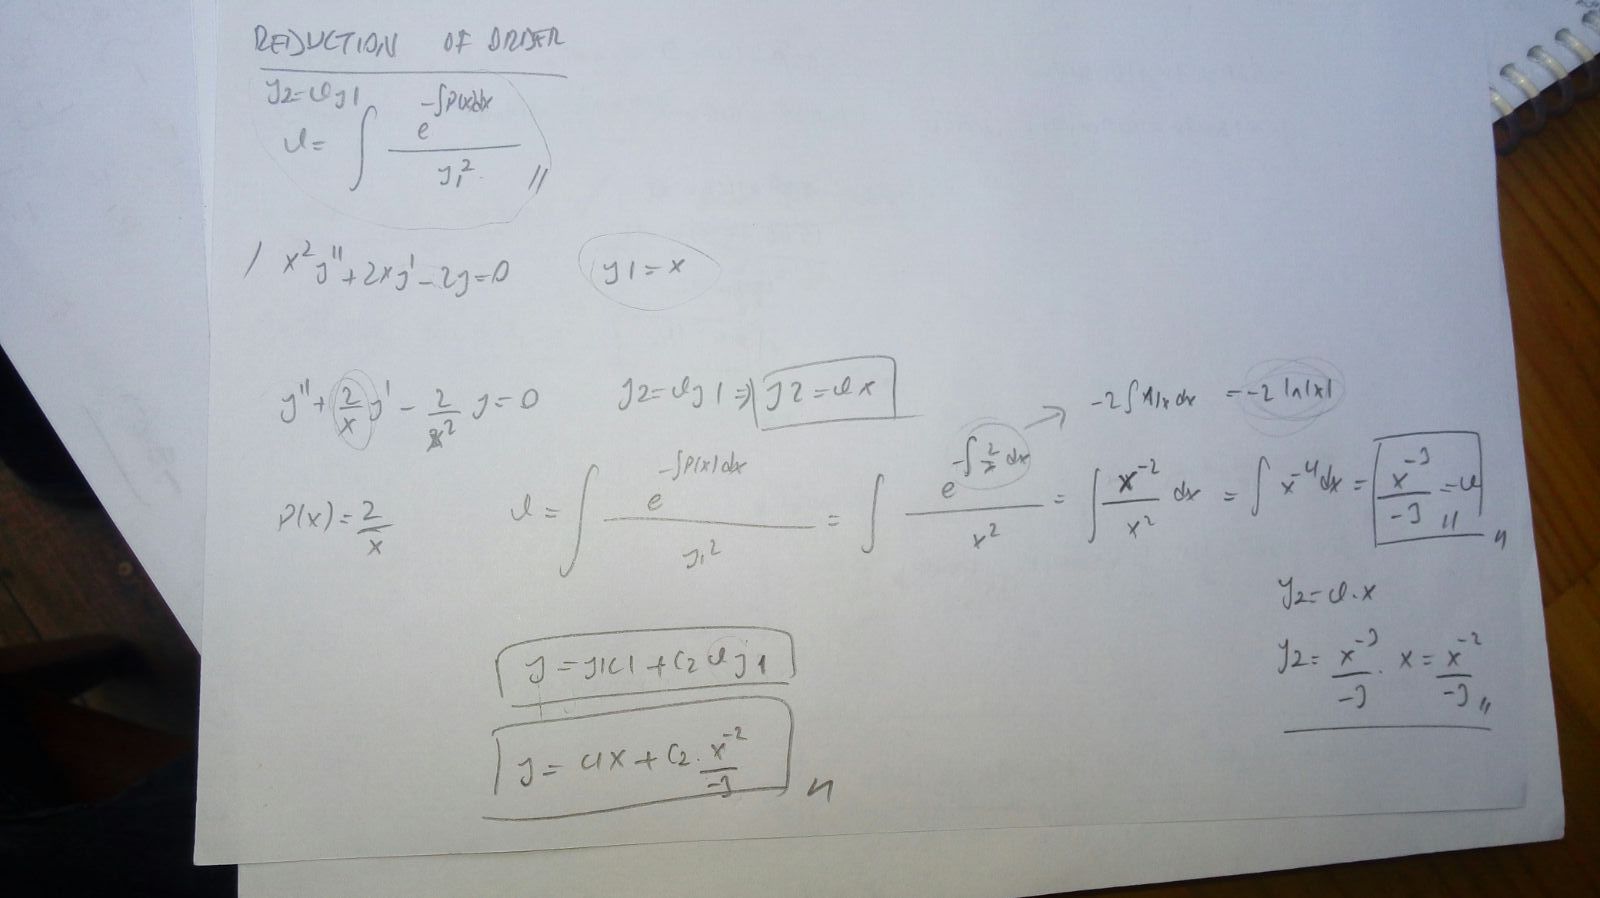 REDUCTION OF ORDER
y2=uy1
u= ∫ e^(-∫P(x)dx) / y₁² //
/ x²y''+2xy'-2y=0 y1=x
y''+ 2/x y' - 2/x² y=0 y2=uy1 ⇒ y2=ux -2∫1/x dx = -2 ln|x|
P(x)= 2/x u= ∫ e^(-∫P(x)dx) / y₁² = ∫ e^(-∫2/x dx) / x² = ∫ x⁻²/x² dx = ∫ x⁻⁴dx = x⁻³/-3 =u //
y2=u.x
y2= x⁻³/-3 . x = x⁻²/-3 //
y=y1c1+c2uy1
y= c1x+c2. x⁻²/-3 //